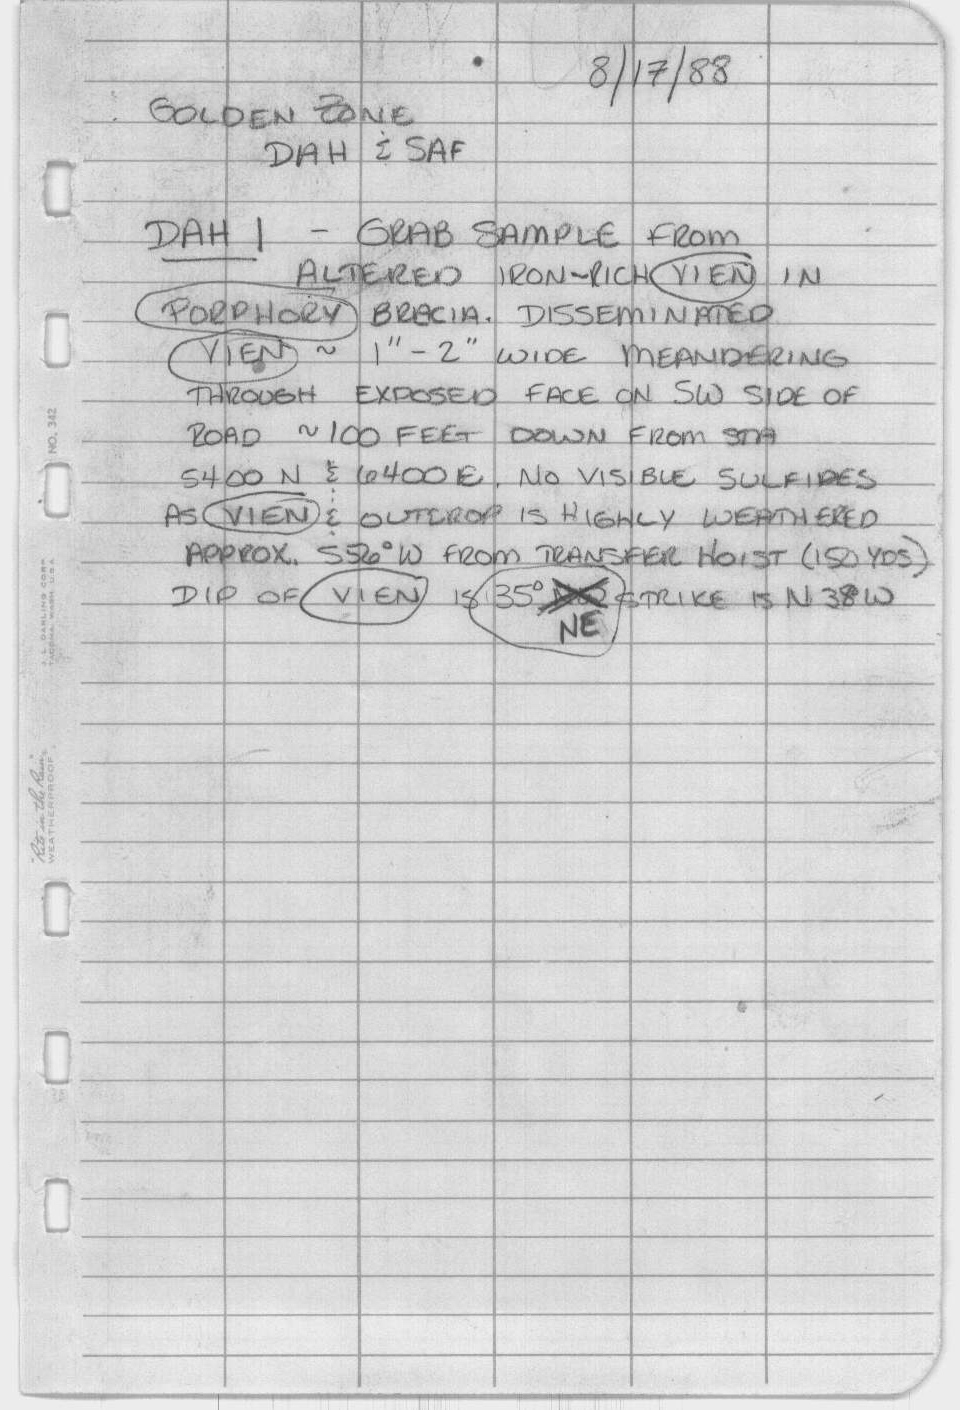 8/17/88
GOLDEN ZONE
DAH & SAF
DAH 1 - GRAB SAMPLE FROM
ALTERED IRON-RICH VIEN IN
PORPHORY BRECIA. DISSEMINATED
VIEN ~ 1" - 2" WIDE MEANDERING
THROUGH EXPOSED FACE ON SW SIDE OF
ROAD ~100 FEET DOWN FROM STA
5400 N & 6400 E. NO VISIBLE SULFIDES
AS VIEN & OUTCROP IS HIGHLY WEATHERED
APPROX. S56°W FROM TRANSFER HOIST (150 YDS)
DIP OF VIEN IS 35° STRIKE IS N 38°W
NE
NO. 342
J. L. DARLING CORP.
TACOMA, WASH. U.S.A.
"Rite in the Rain"
WEATHERPROOF